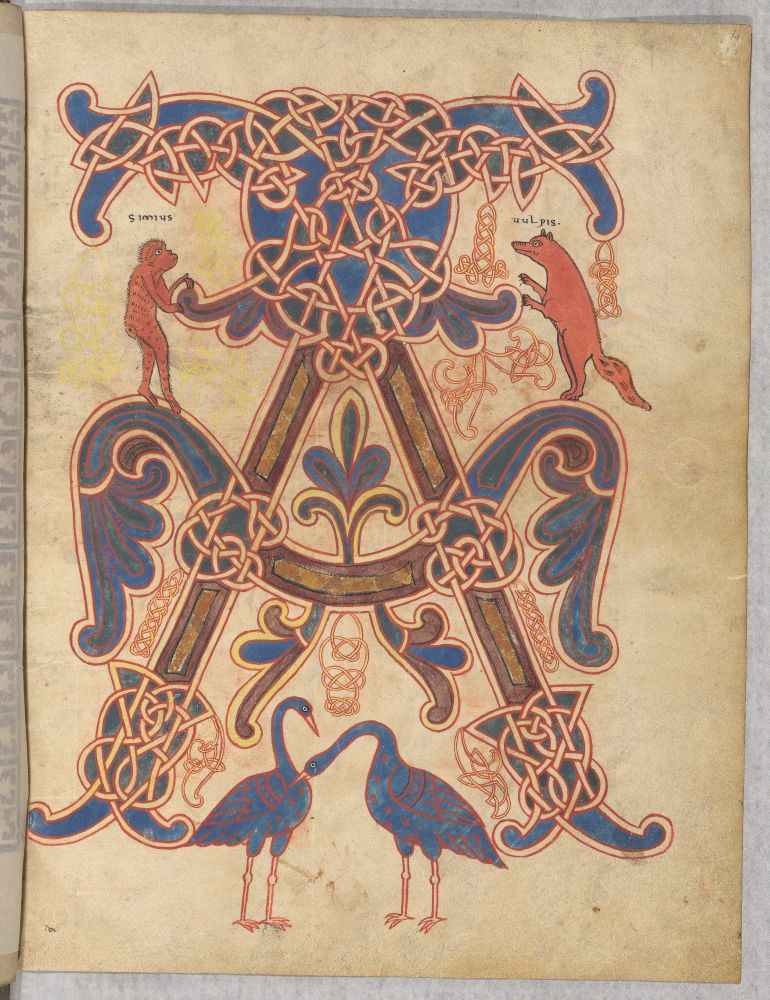 simius
uulpis.
A